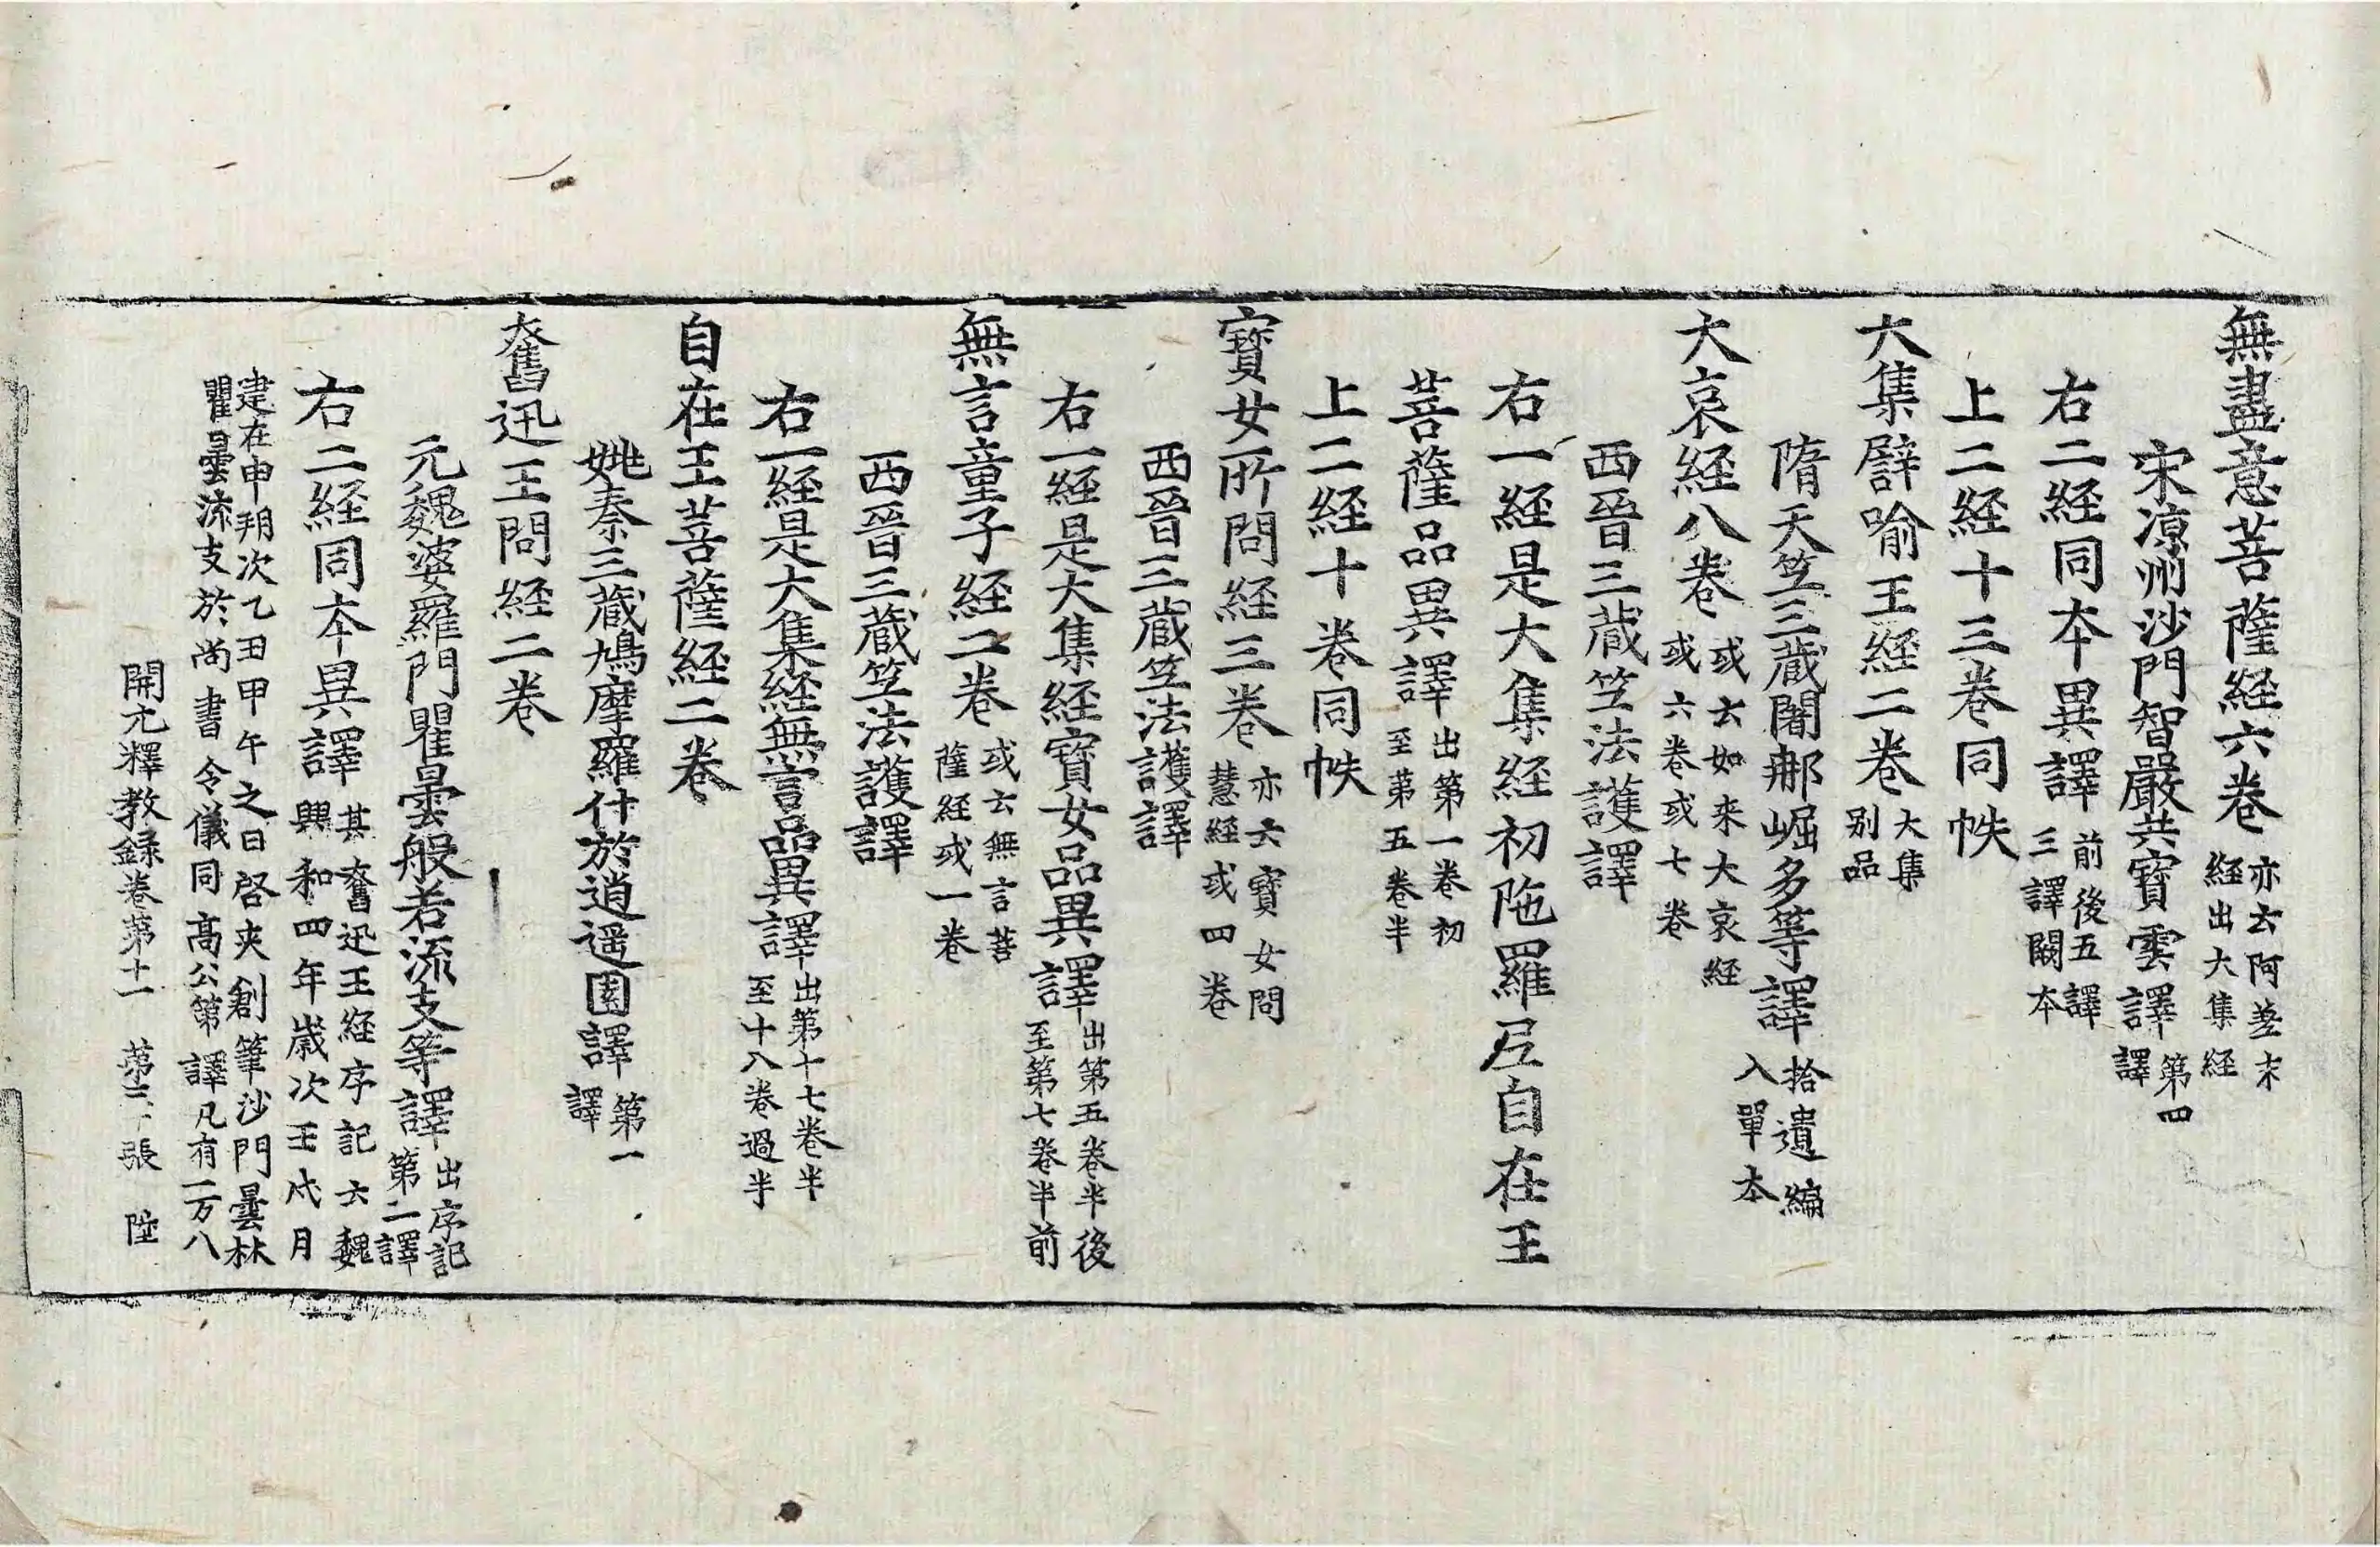 無盡意菩薩経六卷亦云阿差末経出大集経
宋涼州沙門智嚴共寳雲譯第四譯
右二経同本異譯前後五譯三譯闕本
上二経十三卷同帙
大集譬喻王経二卷大集別品
隋天笠三藏闍那崛多等譯拾遺編入單本
大哀経八卷或云如来大哀経或六卷或七卷
西晉三藏笠法護譯
右一経是大集経初陁羅尼自在王
菩薩品異譯出第一卷初至第五卷半
上二経十卷同帙
寳女所問経三卷亦云寳女問慧経或四卷
西晉三藏笠法護譯
右一経是大集経寳女品異譯出第五卷半後至第七卷半前
無言童子経二卷或云無言菩薩経或一卷
西晉三藏笠法護譯
右一経是大集経無言品異譯出第十七卷半至十八卷過半
自在王菩薩経二卷
姚秦三藏鳩摩羅什於逍遥園譯第一譯
奮迅王問経二卷
元魏婆羅門瞿曇般若流支等譯出序記第二譯
右二経同本異譯其奮迅王経序記云魏興和四年歲次壬戌月
建在申朔次乙丑甲午之日啓夾創筆沙門曇林瞿曇流支於尚書令儀同高公第譯凡有一万八
開元釋教録卷第十一 第三十張 陞